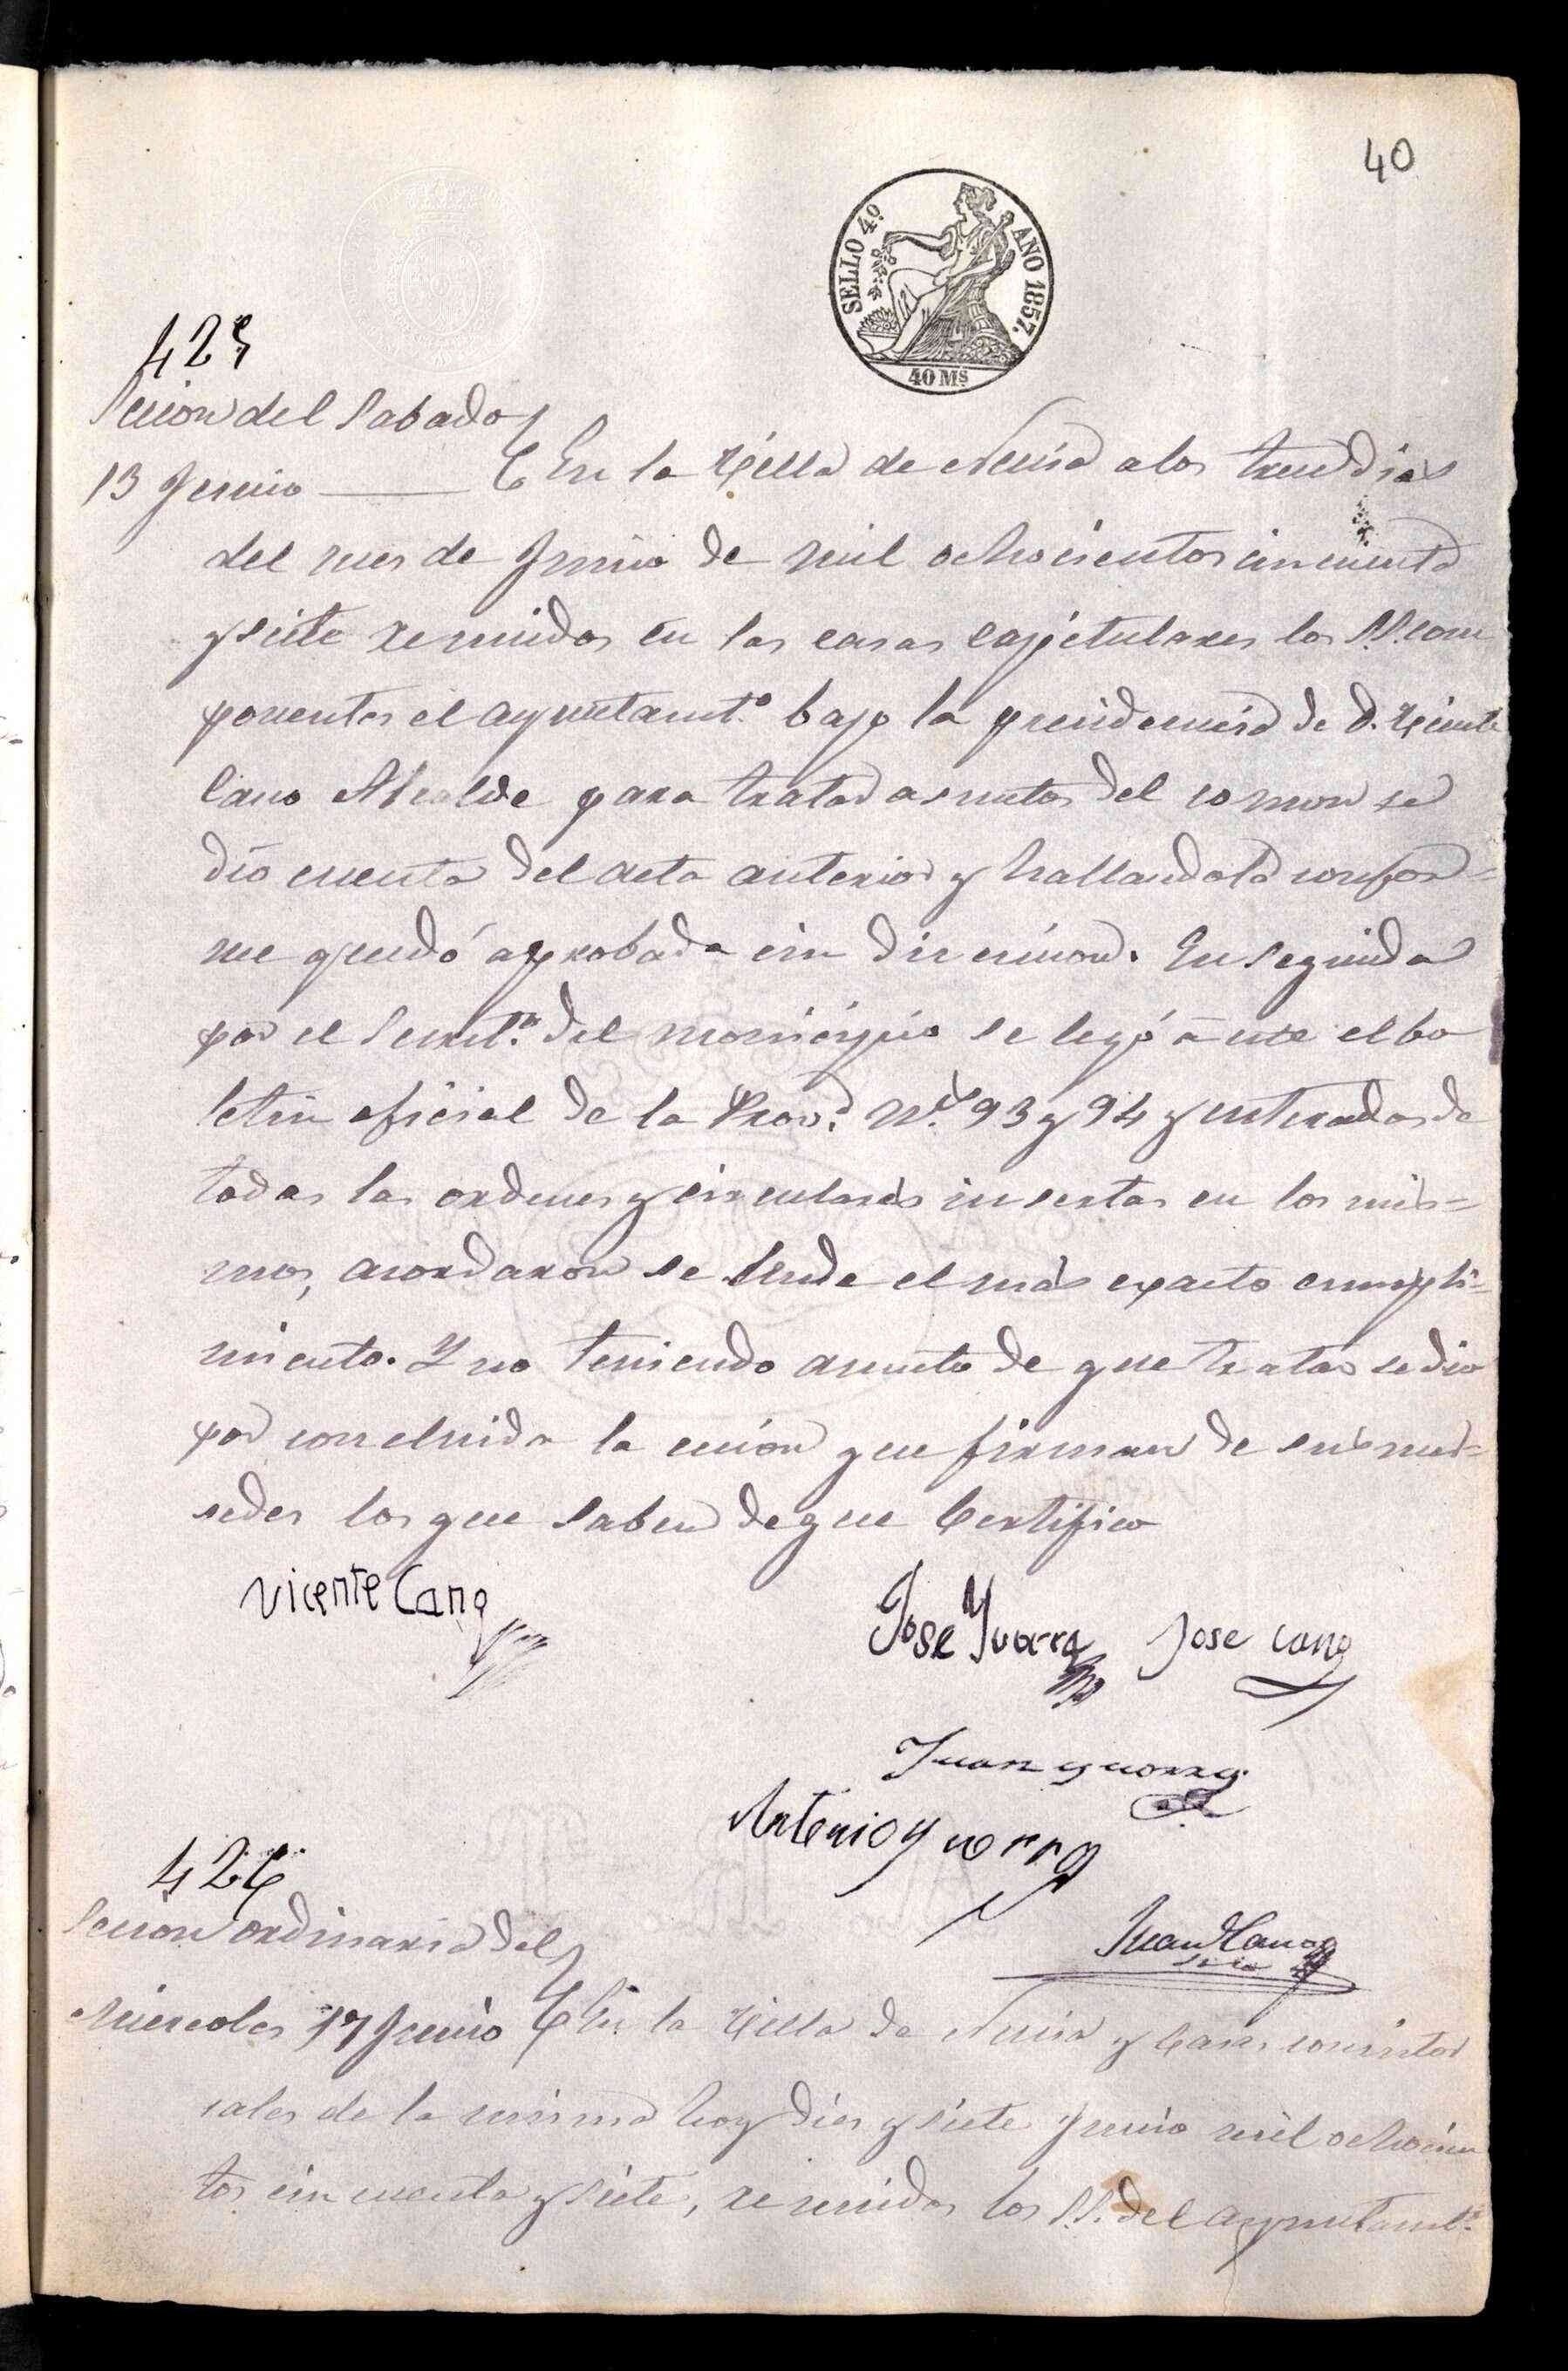 40
SELLO 4º. AÑO 1857.
40 Ms
425
Secion del Sabado
13 Junio — En la Villa de Nucia a los trece dias
del mes de Junio de mil ochocientos cincuenta
y siete reunidos en las casas capitulares los S.S. com
ponentes el ayuntamt.º bajo la presidencia de D. Vicente
Cano Alcalde para tratar asuntos del comun se
dió cuenta del acta anterior y hallandola confor=
me quedó aprobada sin discucion. En seguida
por el Secret.º del monicipio se leyó el bo
letin oficial de la Prov.ª N.s 93 y 94 y enterados de
todas las ordenes y circulares insertas en los mis=
mos, acordaron se le de el más exacto cumpli=
miento. Y no teniendo asunto de que tratar se dio
por concluida la cecion que firman de sus mer=
sedes los que saben de que Certifico
Vicente Cano
Jose Yvorra Jose cano
Juan yvorra
Antonio Yvorra
426
Secion ordinaria del
Juan Cano
Srio
Miercoles 17 Junio En la Villa de Nucia y Casas concistor
iales de la misma hoy dies y siete Junio mil ochocien
tos cincuenta y siete, reunidos los S.S. del ayuntamt.º